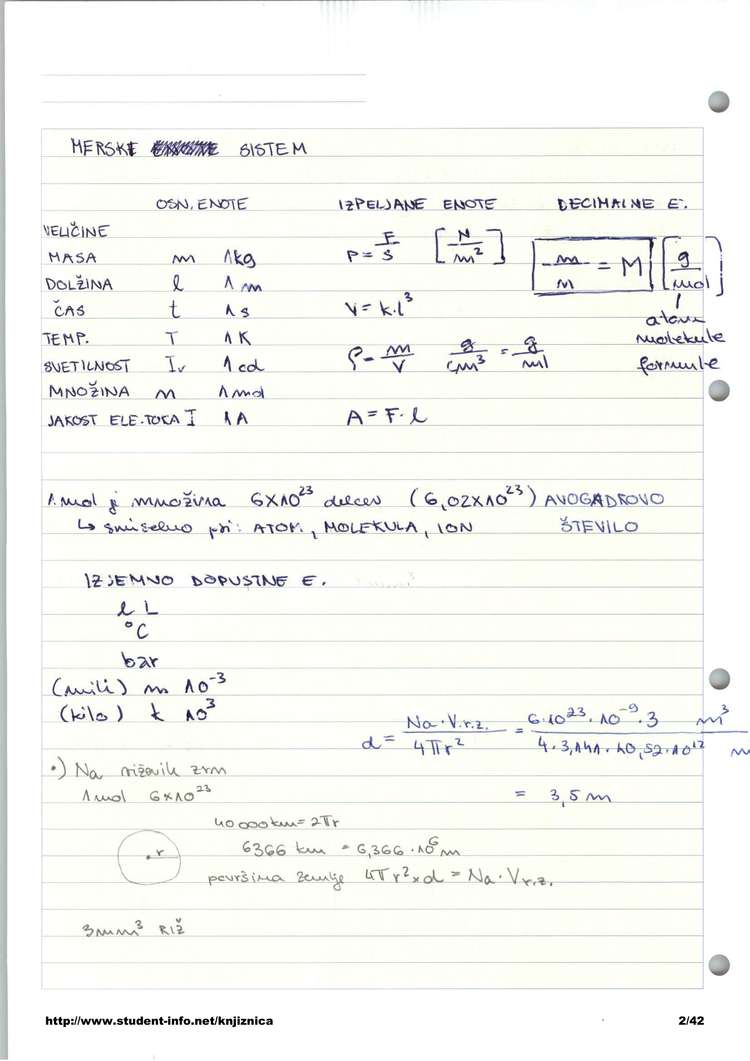 MERSKI SISTEM
OSN. ENOTE IZPELJANE ENOTE DECIMALNE E.
VELIČINE
MASA m 1kg P = F/S [N/m²] m/n = M [g/mol]
DOLŽINA l 1 m
ČAS t 1 s V = k·l³ atomi
TEMP. T 1 K molekule
SVETILNOST Iv 1 cd ρ = m/V g/cm³ = g/ml formule
MNOŽINA n 1 mol
JAKOST ELE.TOKA I 1 A A = F·l
1 mol je množina 6×10²³ delcev (6,02×10²³) AVOGADROVO
↳ smiselno pri: ATOM., MOLEKULA, ION ŠTEVILO
IZJEMNO DOPUSTNE E.
l L
°C
bar
(mili) m 10⁻³
(kilo) k 10³
d = Na·V.r.z./4πr² = 6·10²³·10⁻⁹·3 m³/4·3,141·40,52·10¹² m
•) Na riževih zrn
1 mol 6×10²³ = 3,5 m
40 000 km = 2πr
r 6366 km = 6,366·10⁶ m
površina zemlje 4πr²×d = Na·Vr.z.
3mm³ RIŽ
http://www.student-info.net/knjiznica 2/42